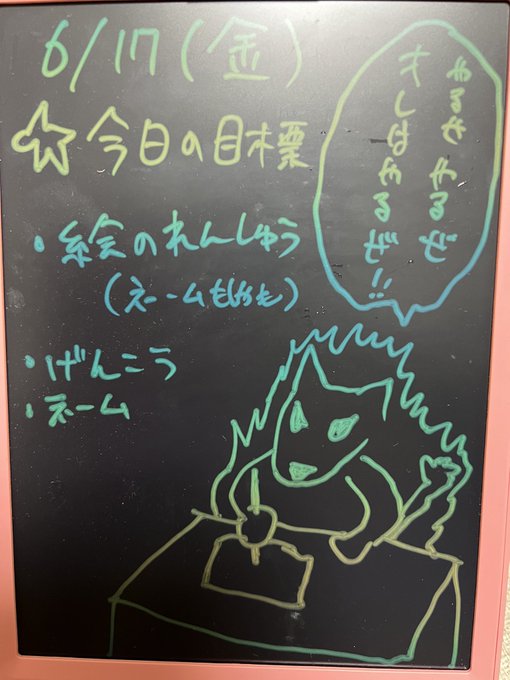 6/17(金)
☆今日の目標
・絵のれんしゅう
(ネームもしかも)
・げんこう
・ネーム
やるぜやるぜ
オレはやるぜ!!